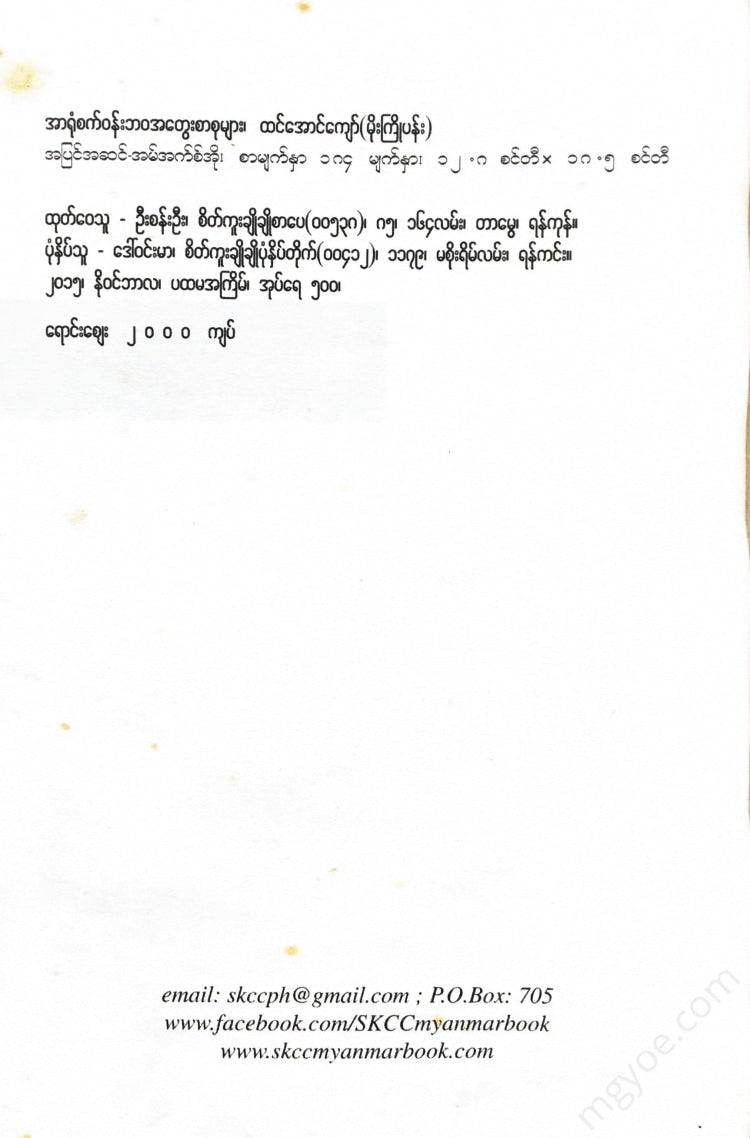 အာရုံစက်ဝန်းဘဝအတွေးစာစုများ၊ ထင်အောင်ကျော်(မိုးကြိုပန်း)
အပြင်အဆင်-အမ်အက်စ်အို၊ စာမျက်နှာ ၁၈၄ မျက်နှာ၊ ၁၂.၈ စင်တီ× ၁၈.၅ စင်တီ
ထုတ်ဝေသူ - ဦးစန်းဦး၊ စိတ်ကူးချိုချိုစာပေ(၀၀၅၃၈)၊ ၈၅၊ ၁၆၄လမ်း၊ တာမွေ၊ ရန်ကုန်။
ပုံနှိပ်သူ - ဒေါ်ဝင်းမာ၊ စိတ်ကူးချိုချိုပုံနှိပ်တိုက်(၀၀၄၁၂)၊ ၁၁၇၉၊ မစိုးရိမ်လမ်း၊ ရန်ကင်း။
၂၀၁၅၊ နိုဝင်ဘာလ၊ ပထမအကြိမ်၊ အုပ်ရေ ၅၀၀၊
ရောင်းဈေး ၂ ၀ ၀ ၀ ကျပ်
email: skccph@gmail.com ; P.O.Box: 705
www.facebook.com/SKCCmyanmarbook
www.skccmyanmarbook.com
mgyoe.com